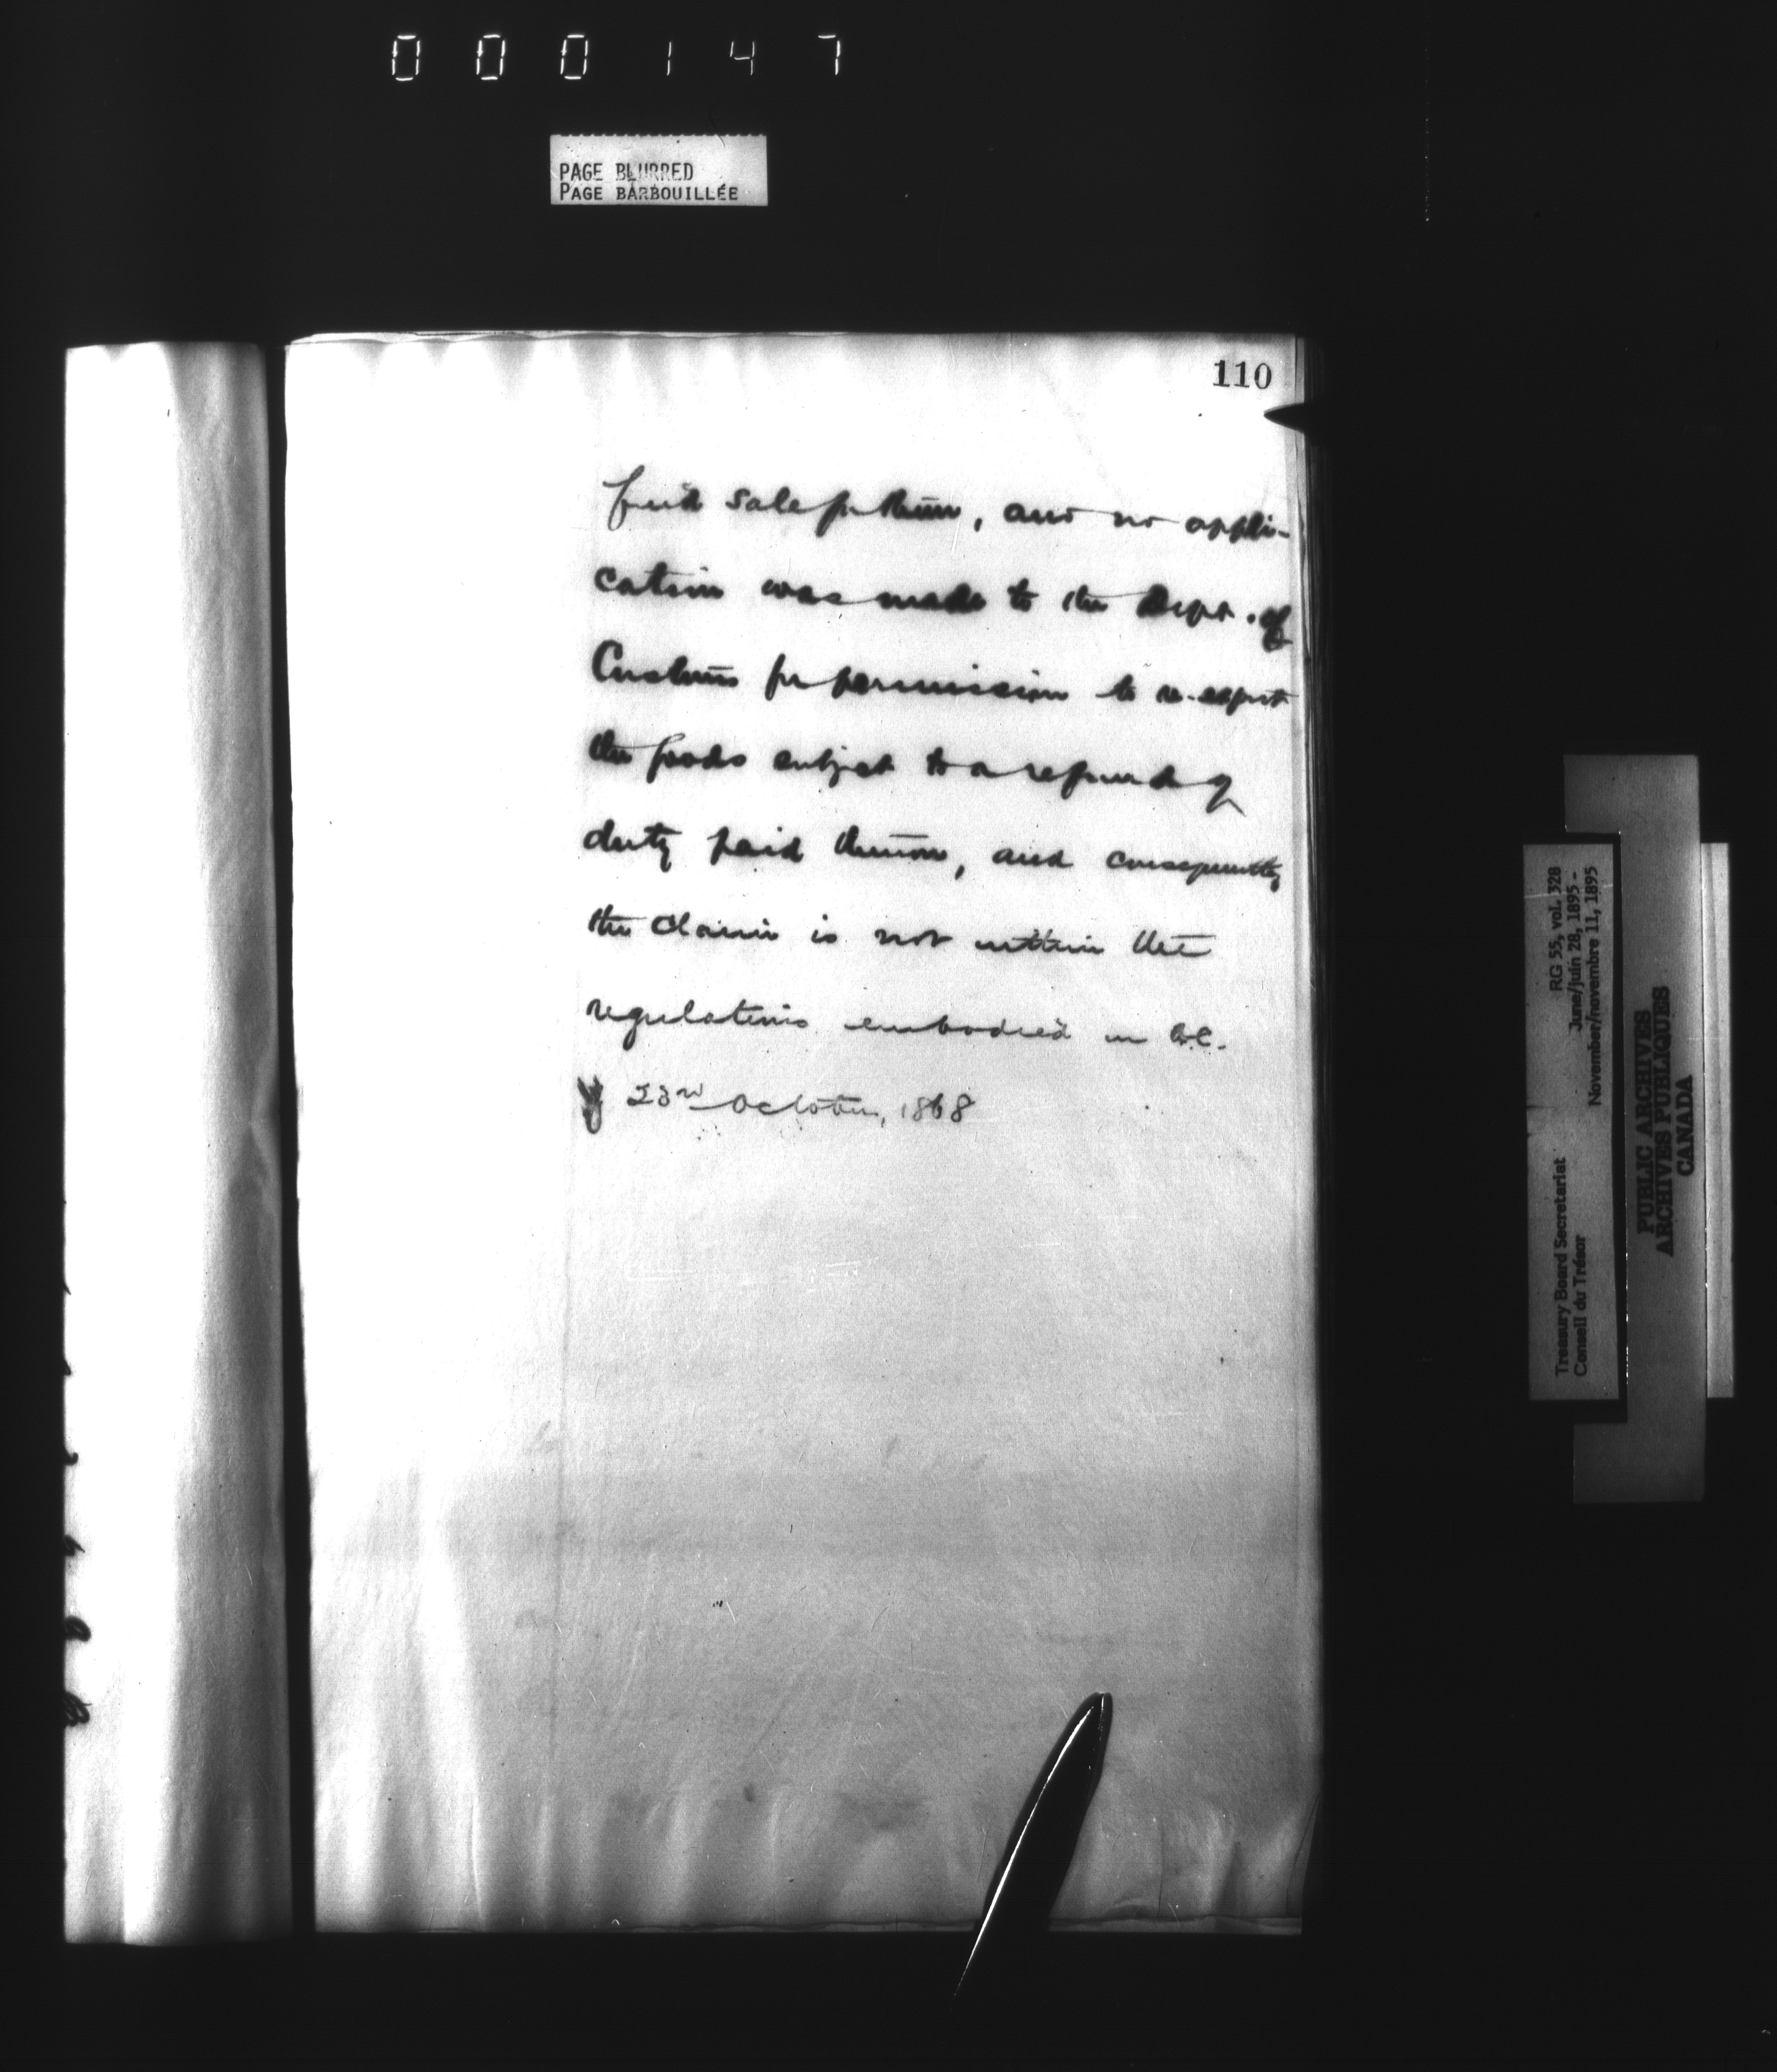 000147
PAGE BLURRED
PAGE BARBOUILLÉE
110
find sale for them, and no appli-
cation was made to the Dept. of
Customs for permission to re-export
the goods subject to a refund of
duty paid thereon, and consequently
the claim is not within the
regulations embodied in O.C.
of 23rd October, 1868
RG 55, vol. 328
June/juin 28, 1895 -
November/novembre 11, 1895
Treasury Board Secretariat
Conseil du Trésor
PUBLIC ARCHIVES
ARCHIVES PUBLIQUES
CANADA